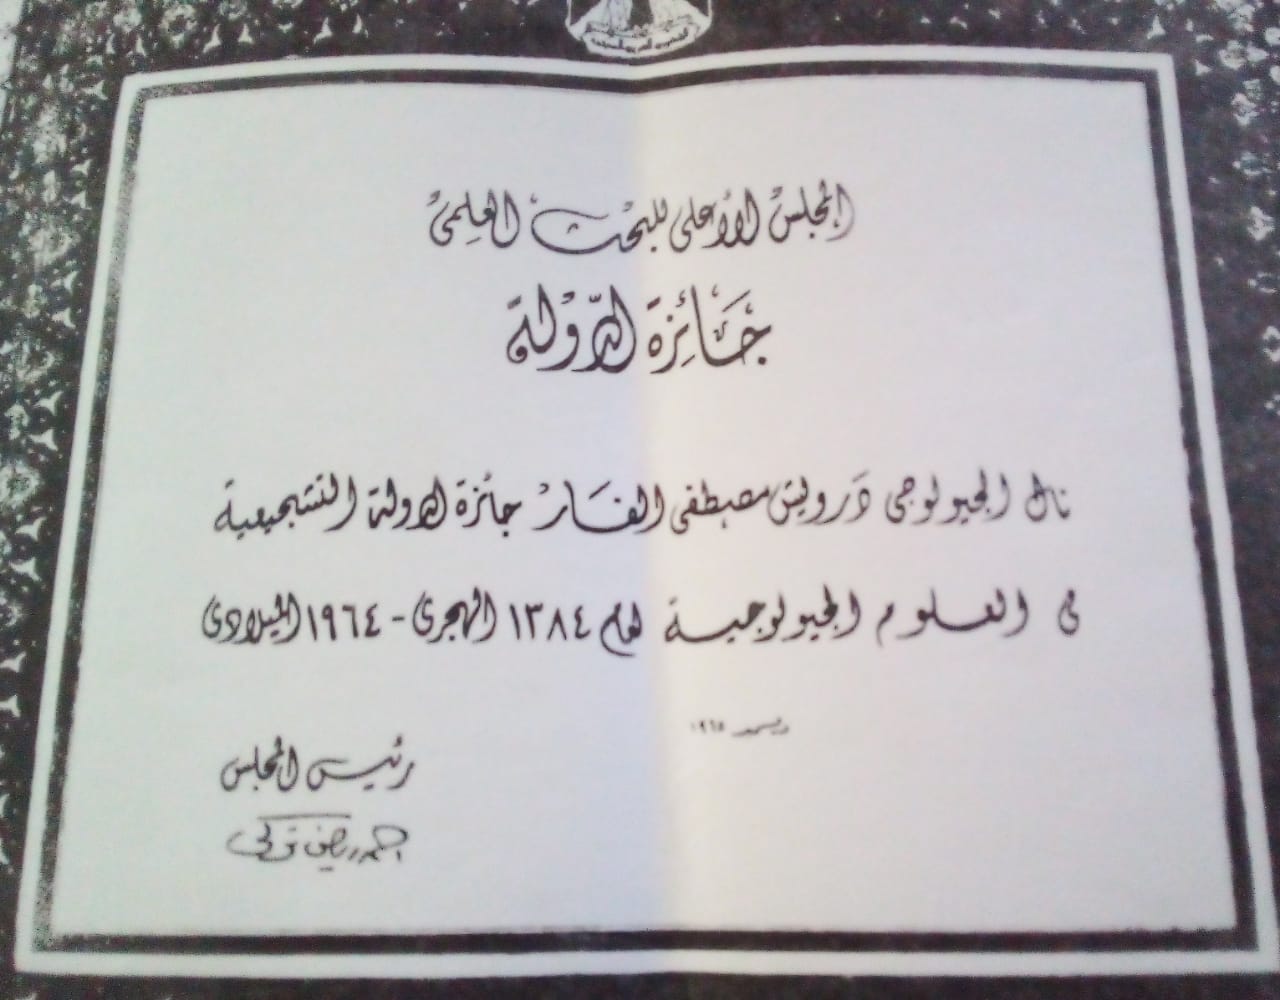 المجلس الأعلى للبحث العلمى
جَائِزة الدّولة
نال الجيولوجى دَرويش مصطفى الفَار جائزة الدولة التشجيعية
فى العلوم الجيولوجية لعام ١٣٨٤ الهجرى - ١٩٦٤ الميلادى
ديسمبر ١٩٦٥
رئيس المجلس
احمد رياض تركى